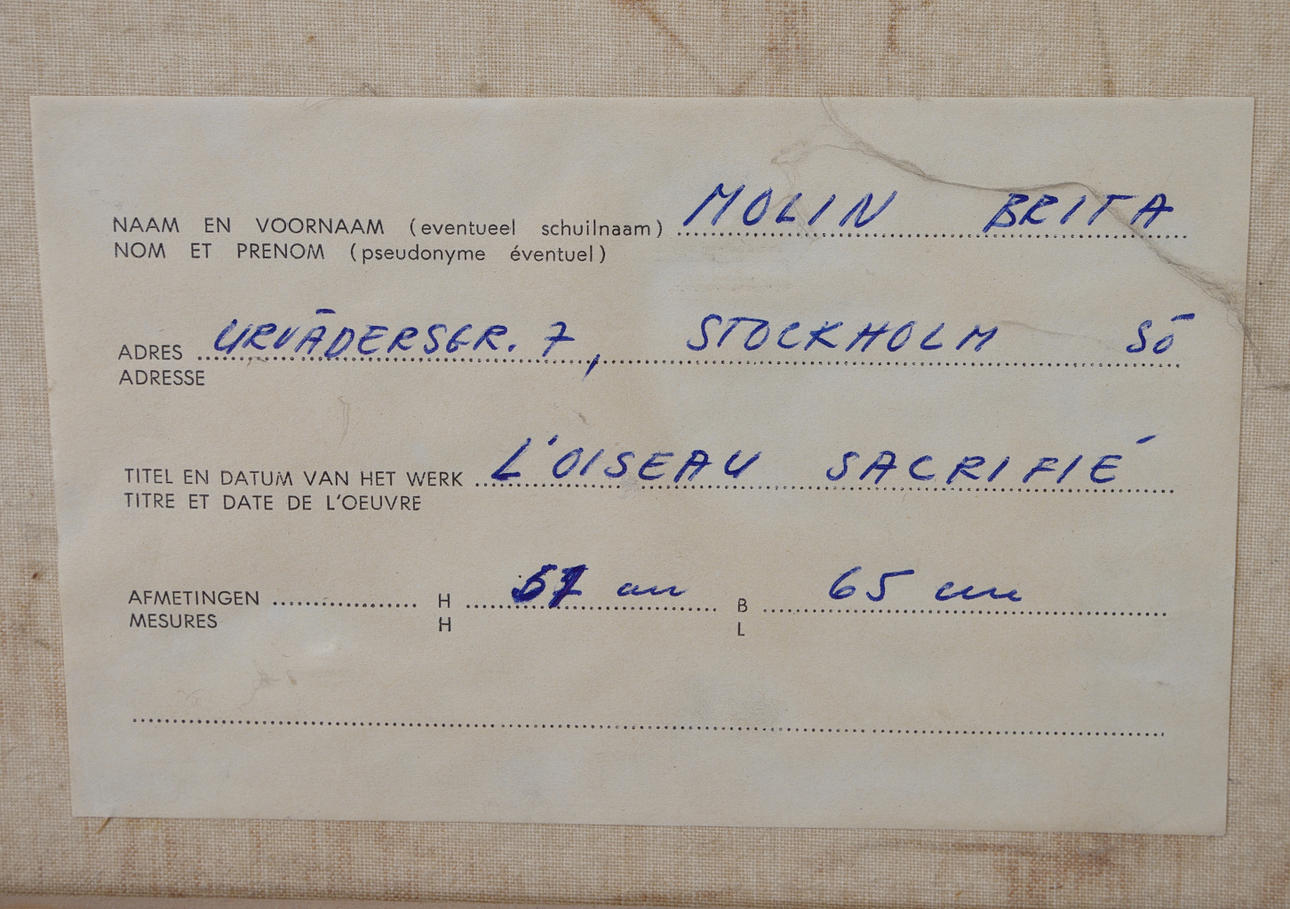 NAAM EN VOORNAAM (eventueel schuilnaam) MOLIN BRITA
NOM ET PRENOM (pseudonyme éventuel)
ADRES URVÄDERSGR. 7, STOCKHOLM SÖ
ADRESSE
TITEL EN DATUM VAN HET WERK L'OISEAU SACRIFIÉ
TITRE ET DATE DE L'OEUVRE
AFMETINGEN H cm B 65 cm
MESURES H L